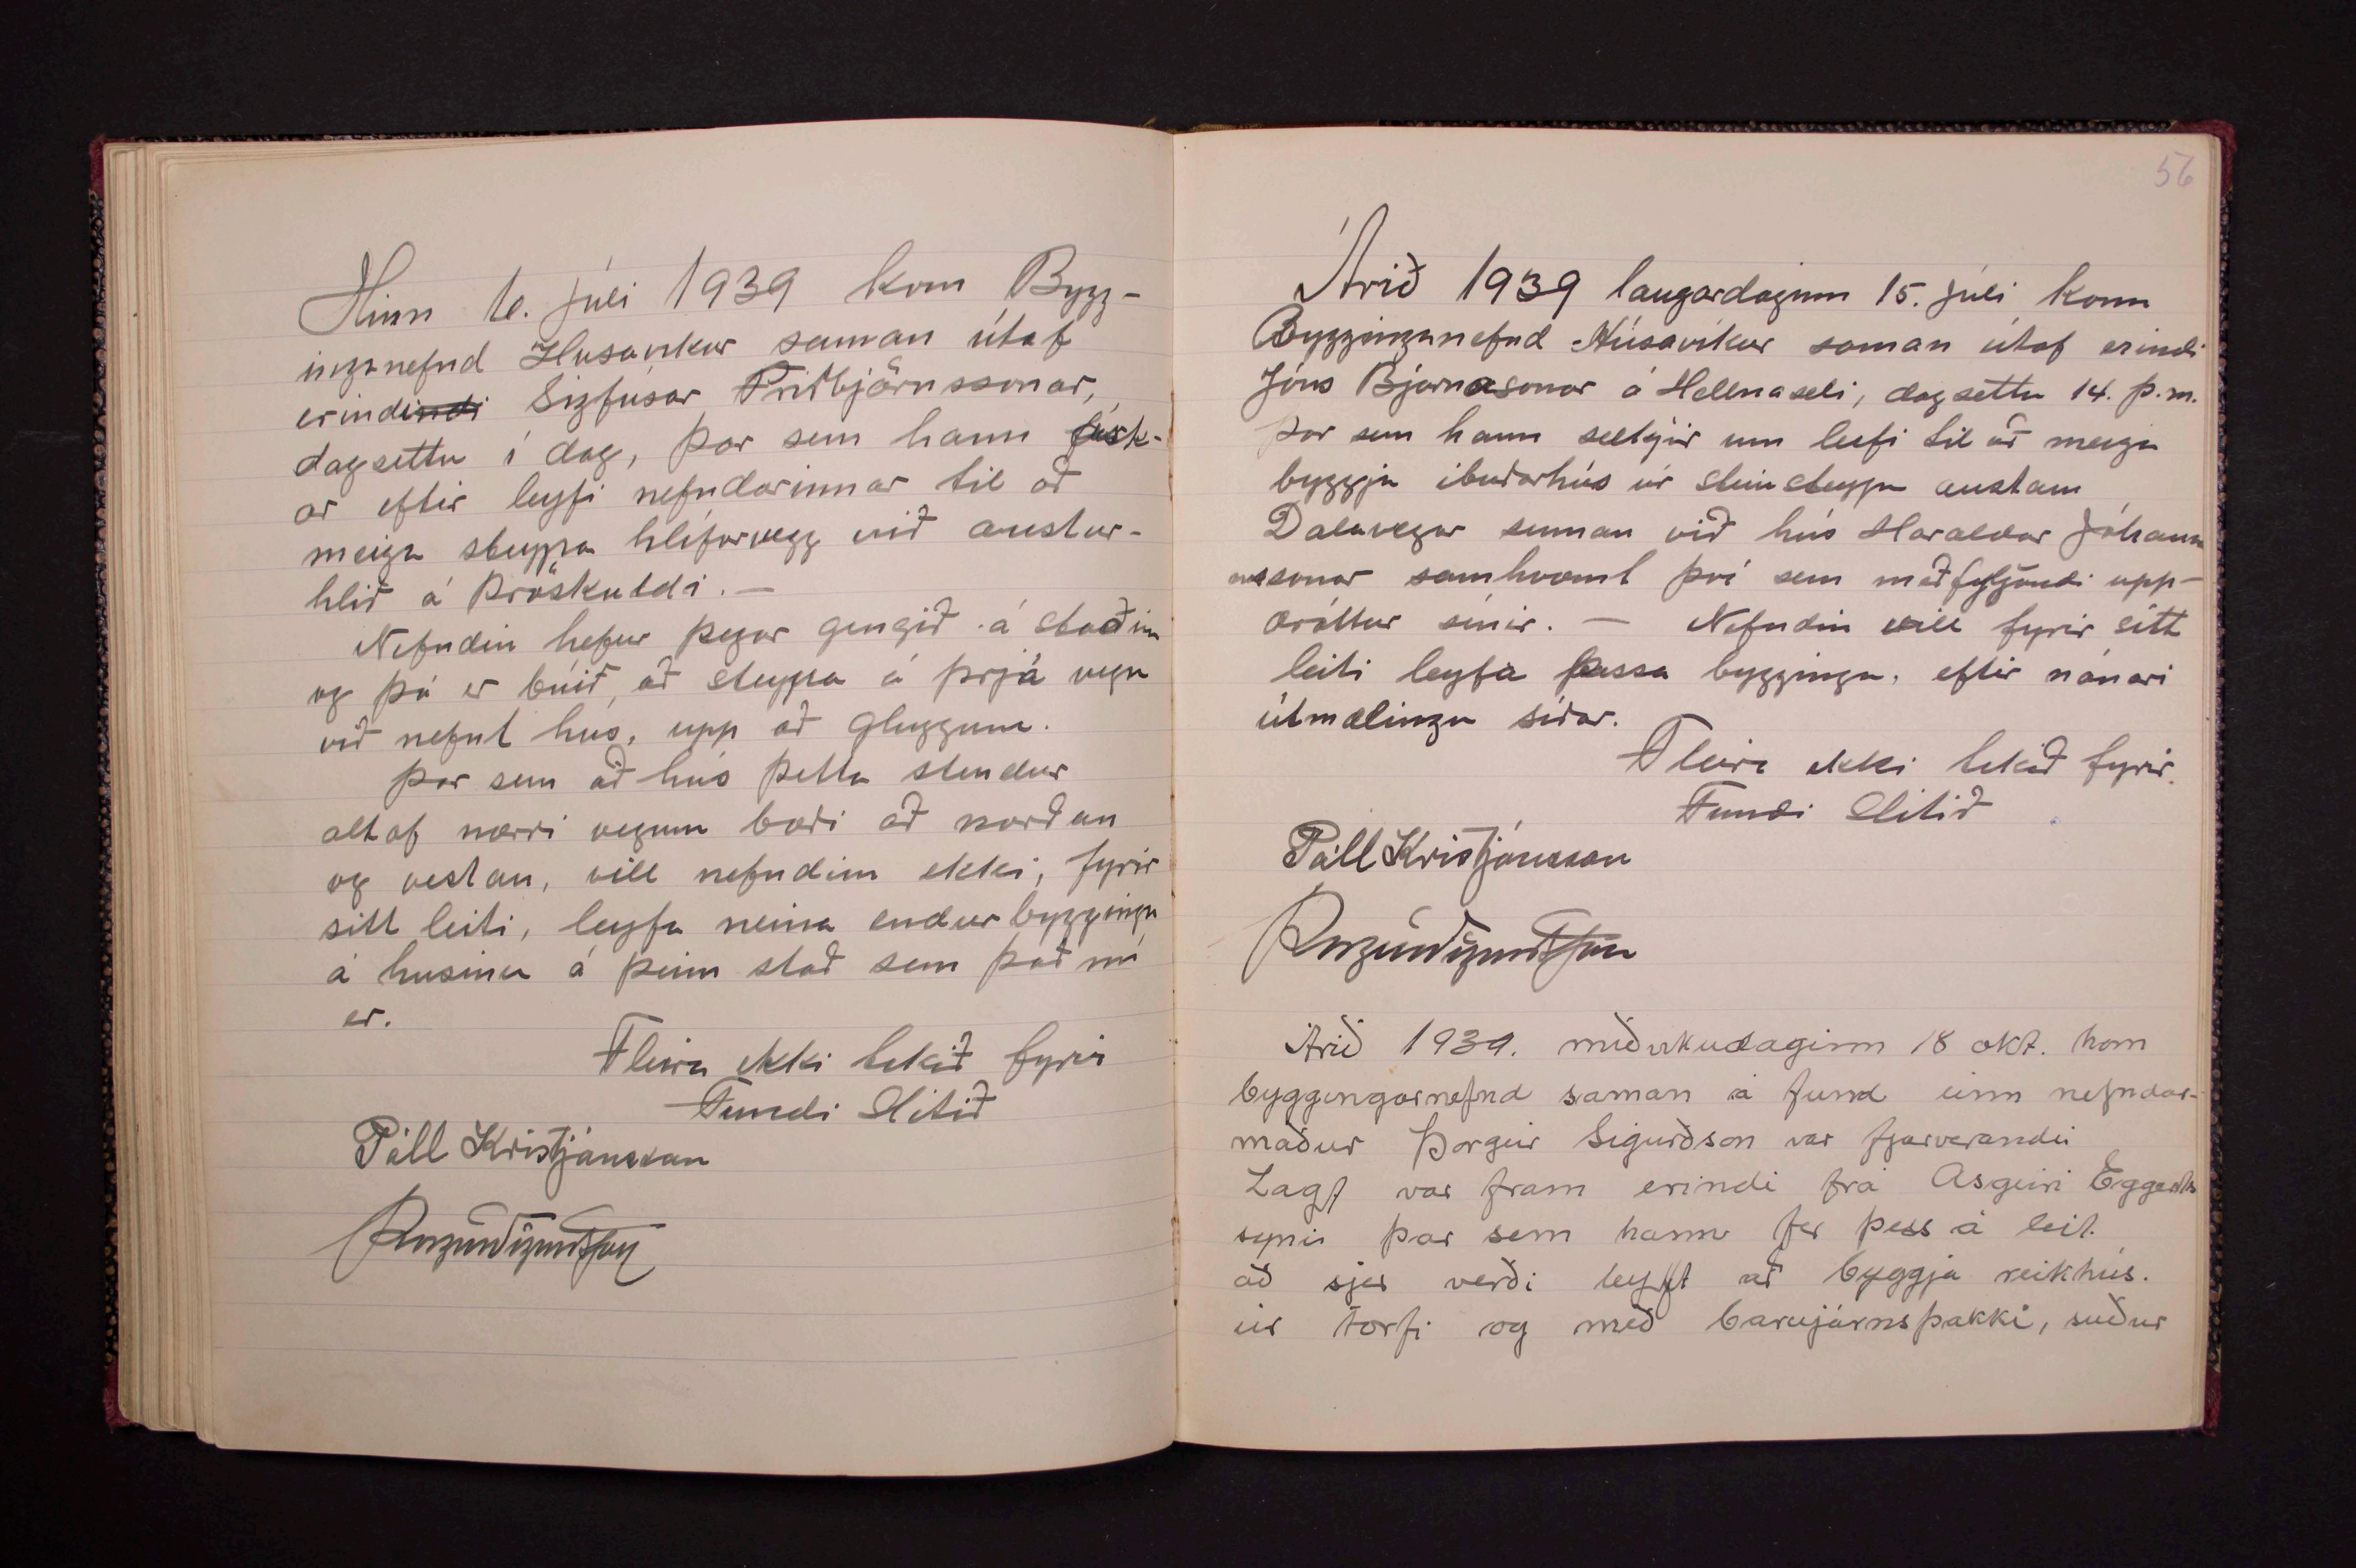 Hinn 10. júli 1939 kom Bygg-
inganefnd Husavikur saman útaf
erindindi Sigfúsar Friðbjörnssonar,
dagsettu í dag, þar sem hann æsk-
ar eftir leyfi nefndarinnar til að
meiga steypa hlífarvegg við austur-
hlið á Þröskuldi. —
Nefndin hefur þegar gengið á staðin
og þá er búið, að steypa á þrjá vegu
við nefnt hús, upp að gluggum.
Þar sem að hús þetta stendur
altof nærri vegum bæði að norðan
og vestan, vill nefndin ekki, fyrir
sitt leiti, leyfa neina endurbyggingu
á husinu á þeim stað sem það nú
er.
Fleira ekki tekið fyrir
Fundi slitið
Páll Kristjánsson
56
Árið 1939 laugardaginn 15. júli kom
Bygginganefnd Húsavíkur saman útaf erindi
Jóns Bjarnasonar á Hellnaseli, dagsettu 14. þ.m.
þar sem hann sækjir um leyfi til að meiga
byggja ibuðarhús úr steinsteypu austan
Dalavegar sunnan við hús Haraldar Jóhann
essonar samhvæmt því sem meðfylgjandi upp-
drættur sínir. — Nefndin vill fyrir sitt
leiti leyfa þessa byggingu, eftir nánari
útmælingu síðar.
Fleira ekki tekið fyrir.
Fundi slitið
Páll Kristjánsson
Árið 1939. miðvikudaginn 18 okt. kom
byggingarnefnd saman á fund einn nefndar-
maður Þorgeir Sigurðson var fjarverandi
Lagt var fram erindi frá Asgeiri Eggerts
syni þar sem hann fer þess á leit.
að sjer verði leyft að byggja reikhús.
úr torfi og með barujárnsþakki, suður